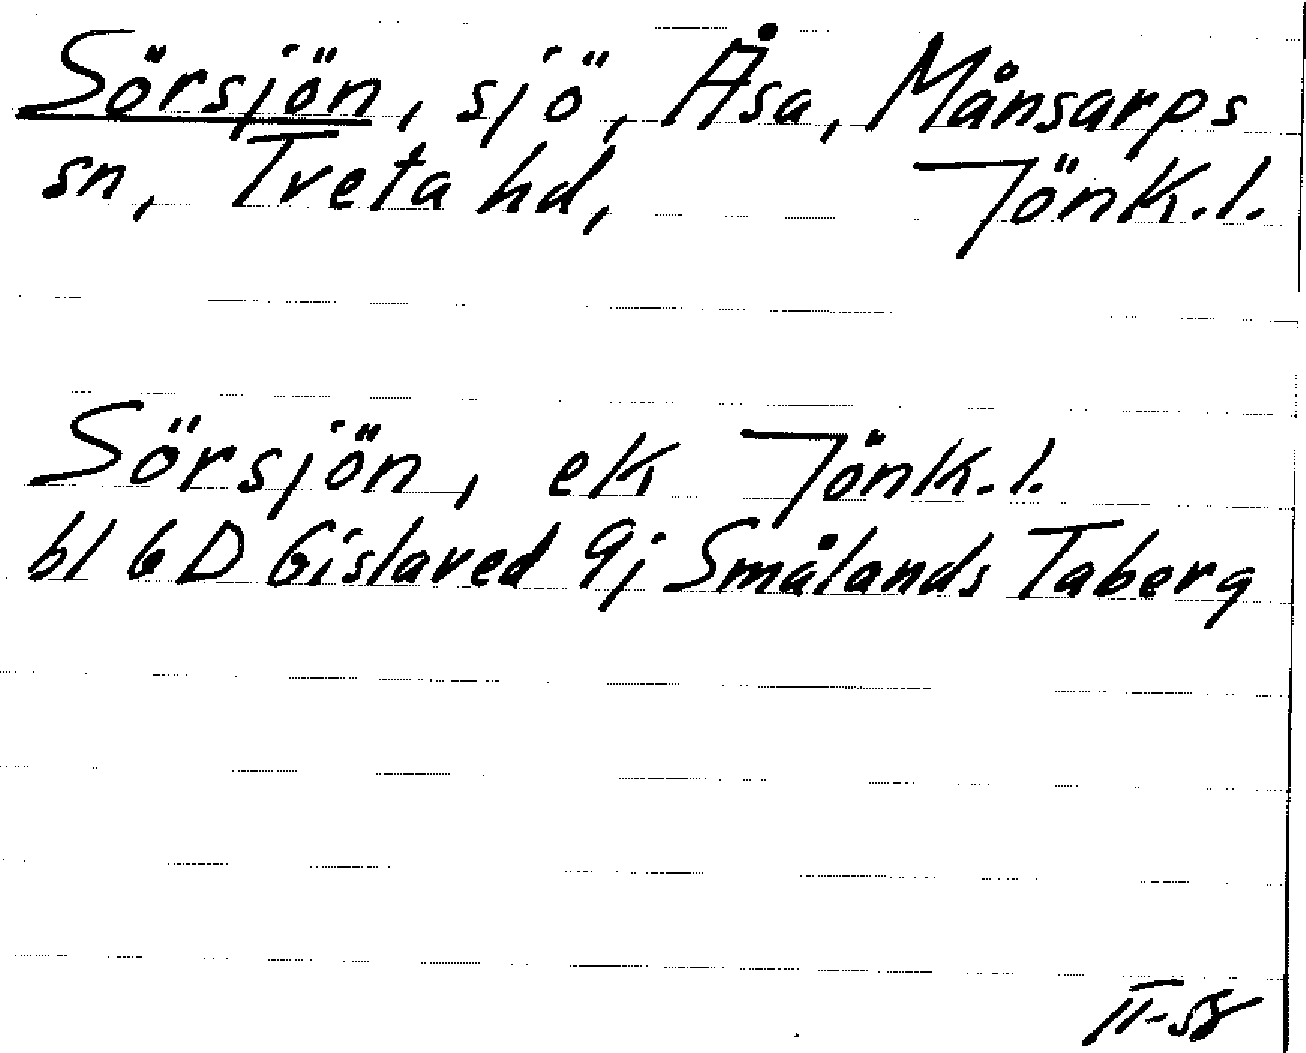 Sörsjön, sjö, Åsa, Månsarps
sn, Tveta hd, Jönk.l.
Sörsjön, ek Jönk.l.
bl 6 D Gislaved 9j Smålands Taberg
II-58